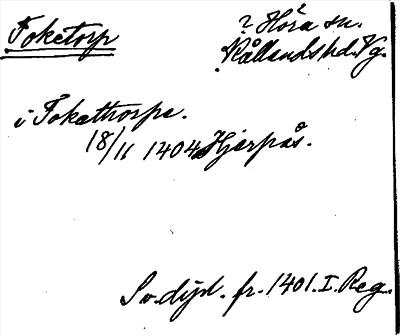 Foketorp
? Höra sn.
Kållands hd. Vg.
i Fokathorpe.
18/11 1404 Hjerpås.
Sv. dipl. fr. 1401. I. Reg.